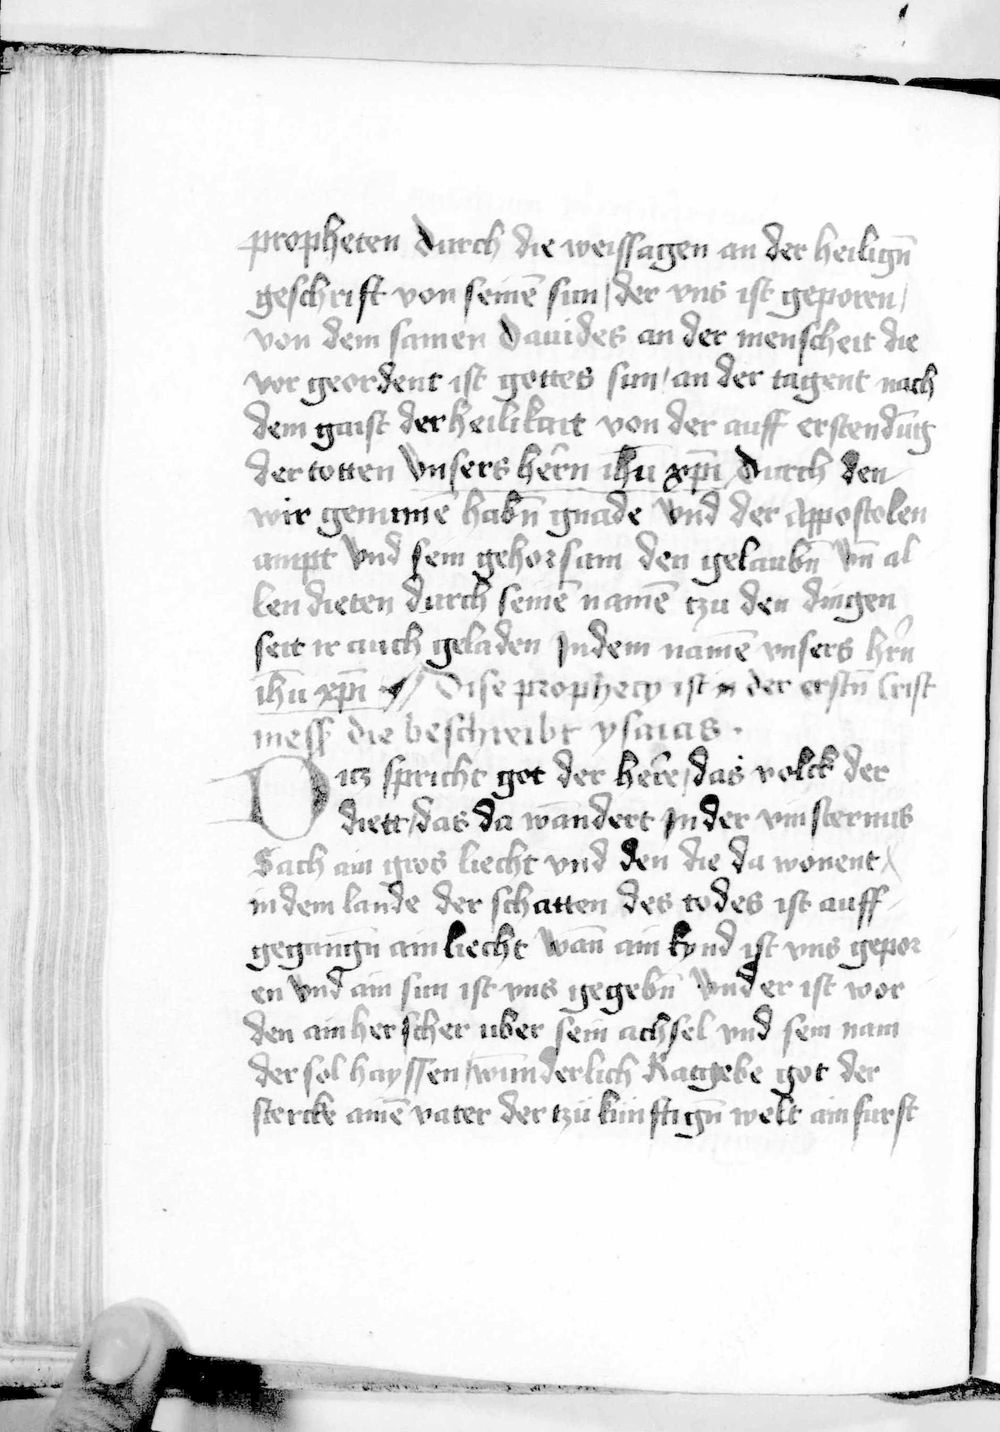 propheten durch die weissagen an der heiligñ
geschrift von seinē sun / der vns ist geporen /
von dem samen Dauides an der menscheit die
vor geordent ist gottes sun / an der tagent nach
dem gaist der heilikait von der auff erstendūg
der totten Vnsers herñ ihū xp̄i Durch den
wir genumē habñ gnade Vnd der Appostolen
ampt Vnd sein gehorsam den gelaubñ Vn̄ al
len dieten durch seinē namē tzu den dingen
seit ir auch geladen Jn dem namē vnsers hr̃n
ihū xp̄i // Dise prophecy ist in der erstñ Crist
mess die beschreibt ysaias .
Ditz spricht got der here / das volck der
diett / das da wandert Jn der vinsternus
Sach ain gros liecht vnd den die da wonent
in dem lande der schatten des todes ist auff
gegangñ ain liecht Wan̄ ain kynd ist vns gepor
en Vnd ain sun ist vns gegebñ Vnd er ist wor
den ain herscher uber sein achsel vnd sein nam
der sol hayssen / wunderlich Ratgebe got der
stercke ainē vater der tzükünftigñ welt ain furst